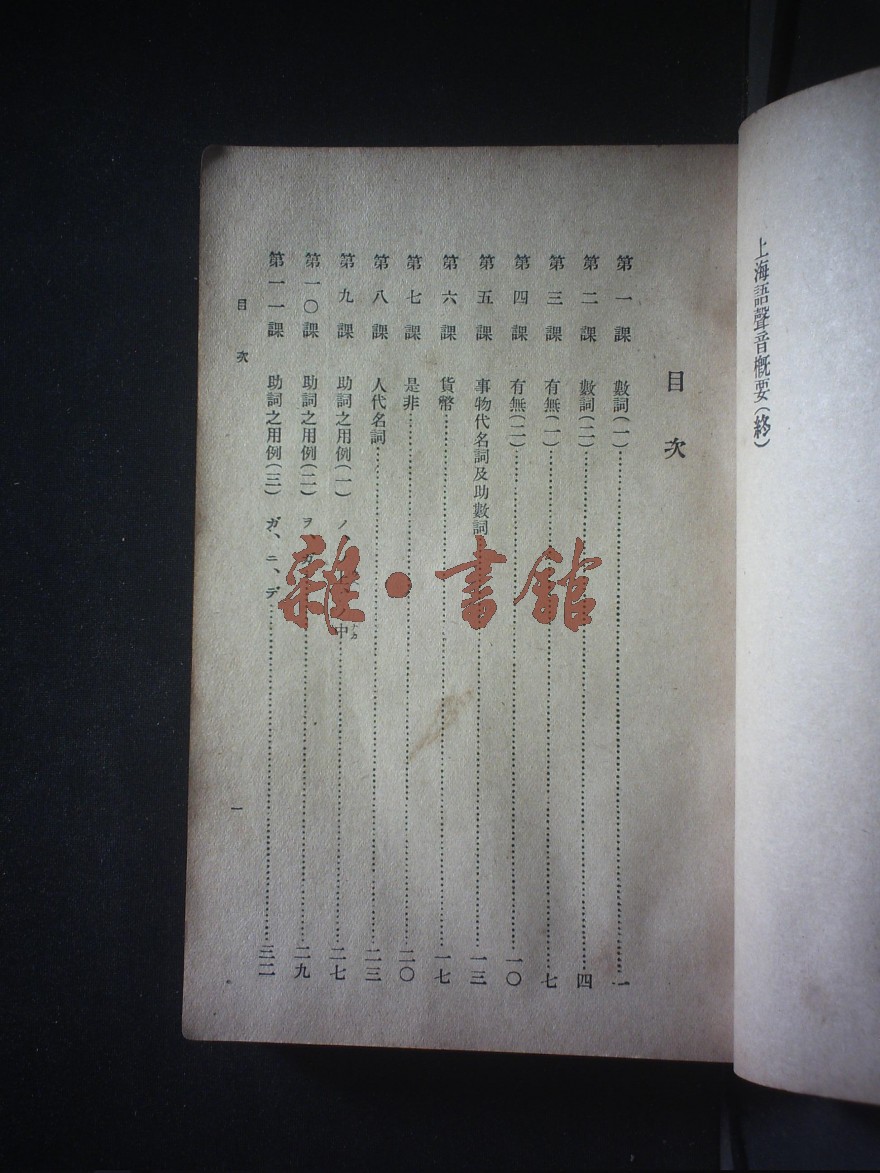 上海語聲音概要（終）
目次
第一課 數詞（一）……一
第二課 數詞（二）……四
第三課 有無（一）……七
第四課 有無（二）……一〇
第五課 事物代名詞及助數詞……一三
第六課 貨幣……一七
第七課 是非……二〇
第八課 人代名詞……二三
第九課 助詞之用例（一） ノ 中ナカ……二七
第一〇課 助詞之用例（二） ヲ、……二九
第一一課 助詞之用例（三） ガ、ニ、デ……三二
目次
一
雜·書館